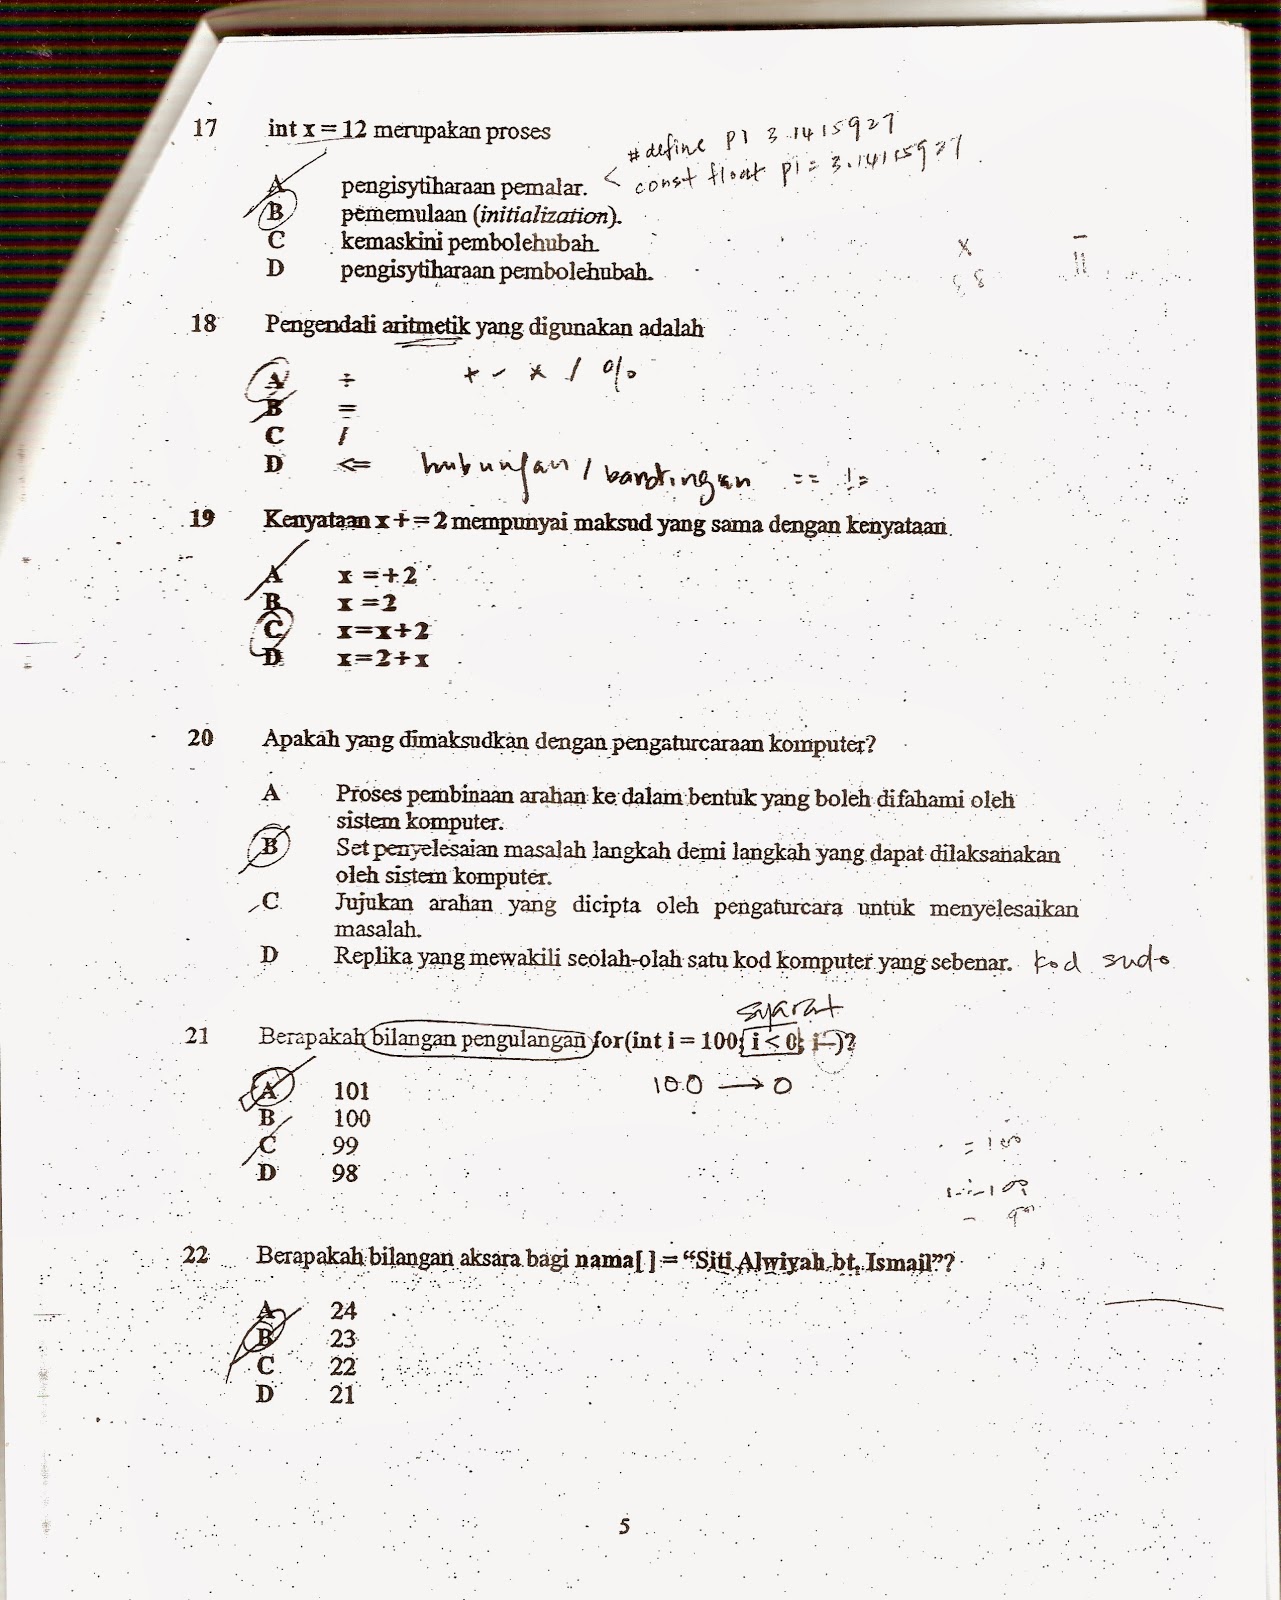 17 int x = 12 merupakan proses
#define PI 3.1415927
A pengisytiharaan pemalar. < const float pi = 3.1415927
B pememulaan (initialization).
C kemaskini pembolehubah.
D pengisytiharaan pembolehubah.
x
18 Pengendali aritmetik yang digunakan adalah
A ÷ + - * / %
B =
C /
D <= hubungan / bandingan == !=
19 Kenyataan x + = 2 mempunyai maksud yang sama dengan kenyataan
A x =+2
B x =2
C x=x+2
D x=2+x
20 Apakah yang dimaksudkan dengan pengaturcaraan komputer?
A Proses pembinaan arahan ke dalam bentuk yang boleh difahami oleh
sistem komputer.
B Set penyelesaian masalah langkah demi langkah yang dapat dilaksanakan
oleh sistem komputer.
C Jujukan arahan yang dicipta oleh pengaturcara untuk menyelesaikan
masalah.
D Replika yang mewakili seolah-olah satu kod komputer yang sebenar. kod sudo
syarat
21 Berapakah bilangan pengulangan for(int i = 100; i < 0; i--)?
100 → 0
A 101
B 100
C 99
D 98
= 100
22 Berapakah bilangan aksara bagi nama[ ] = “Siti Alwiyah bt. Ismail”?
A 24
B 23
C 22
D 21
5